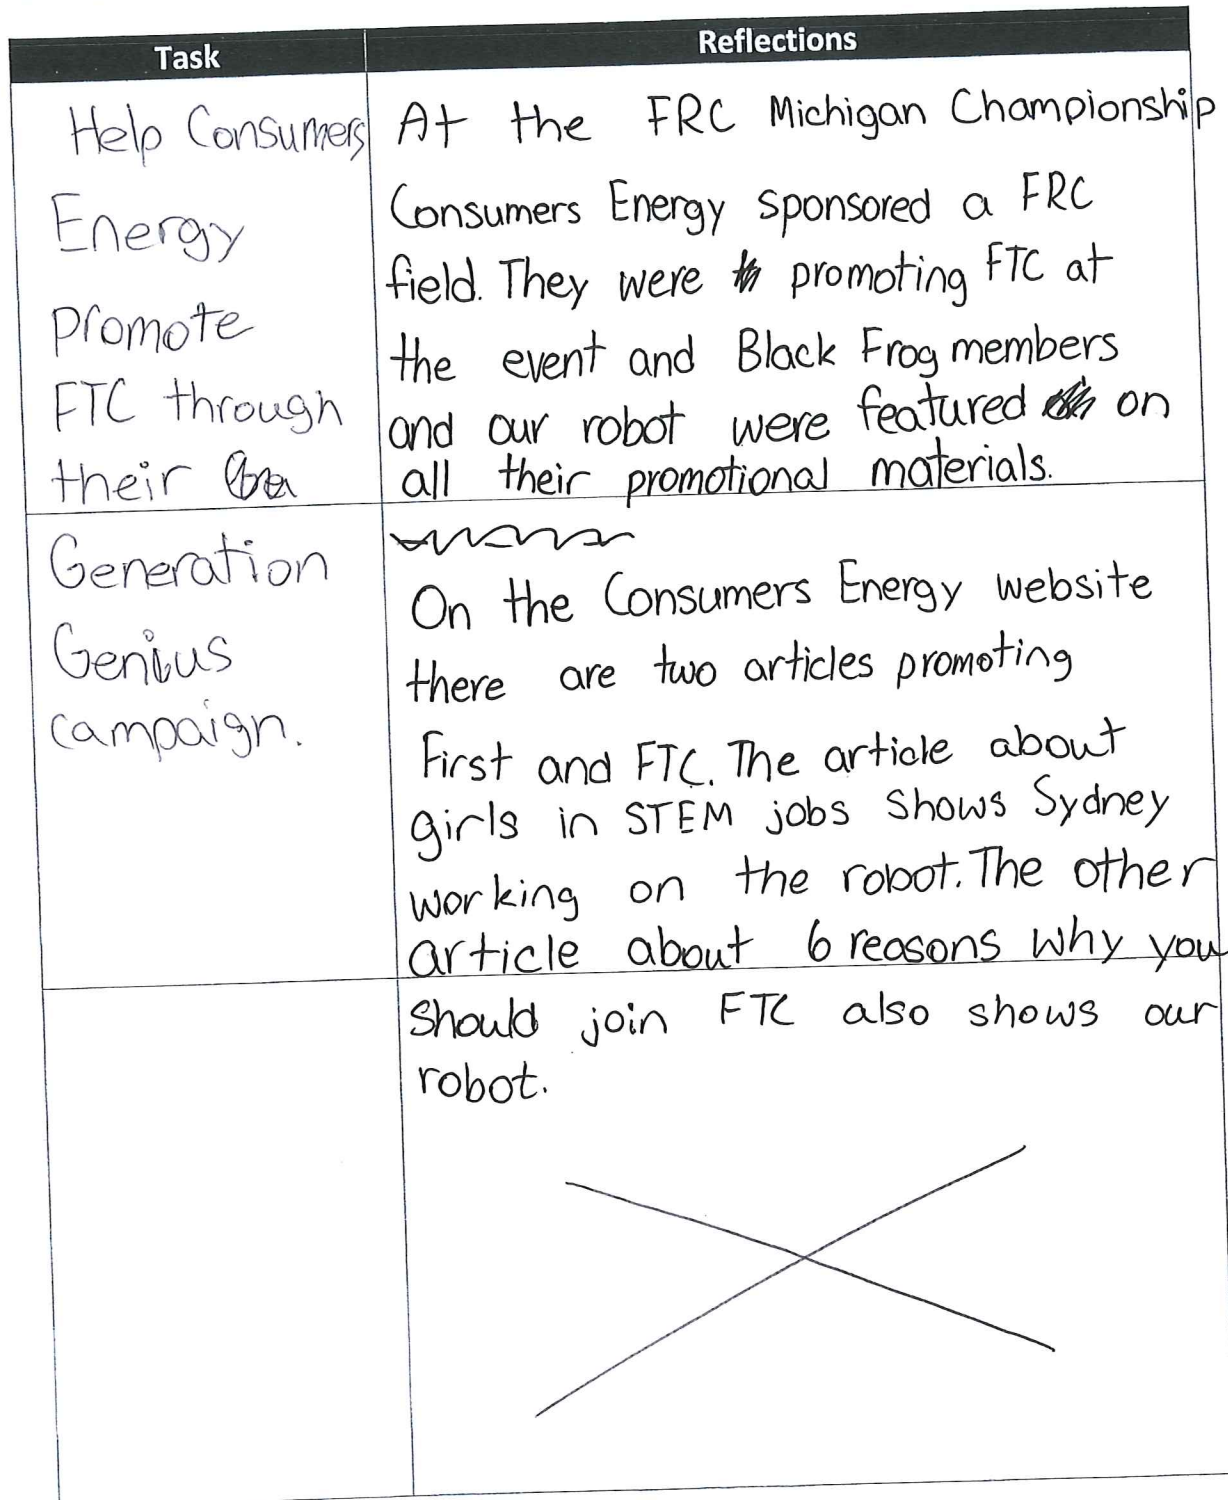 Task
Reflections
Help Consumers
Energy
promote
FTC through
their
Generation
Genius
campaign.
At the FRC Michigan Championship
Consumers Energy sponsored a FRC
field. They were promoting FTC at
the event and Black Frog members
and our robot were featured on
all their promotional materials.
On the Consumers Energy website
there are two articles promoting
First and FTC. The article about
girls in STEM jobs shows Sydney
working on the robot. The other
article about 6 reasons why you
should join FTC also shows our
robot.